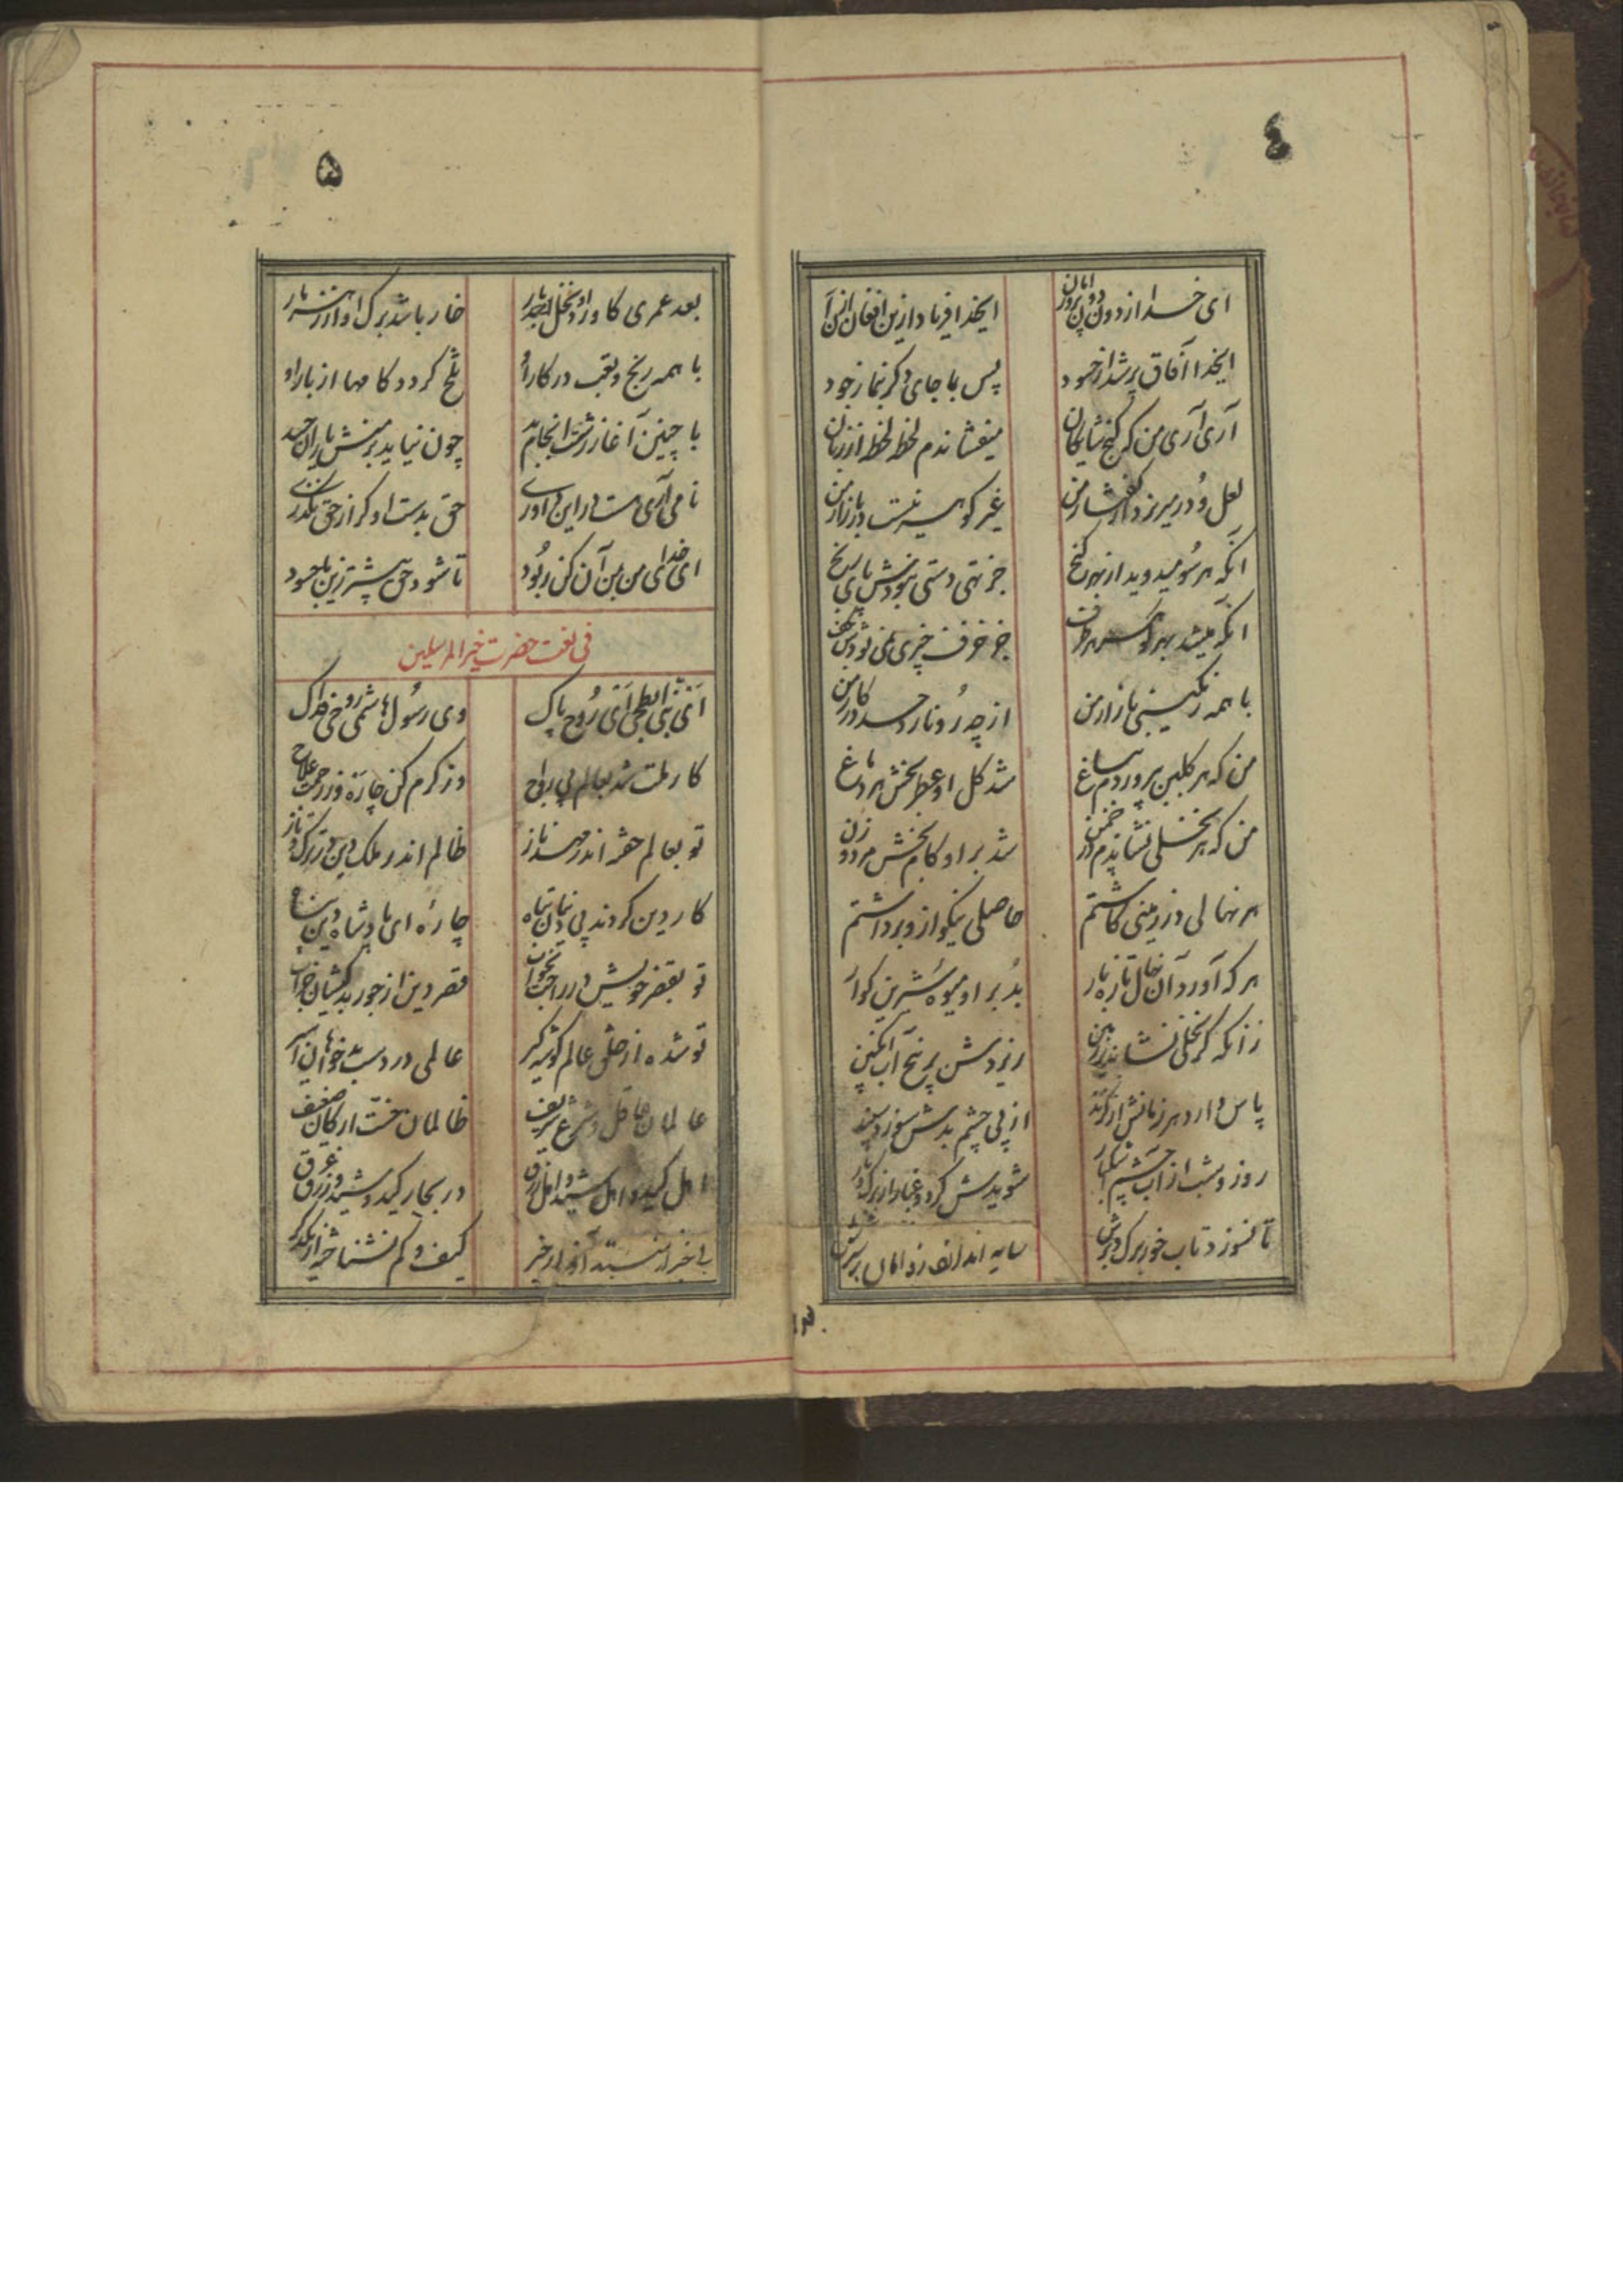 ٤
ای خدا از دونان دون پرور امان
ایخدا فریاد ازین افغان ازآن
ایخدا آفاق پر شد از حسود
پس بما جای دکر بنما زجود
آری آری من که کنج شایکان
میفشاندم لحظه لحظه از زبان
لعل و در ریزد کفتار من
غیر کوهر نیست در بازار من
آنکه هر سو میدوید از بهر کنج
جز تهی دستی نبودش پای رنج
جز خزف چیزی نمی بودش بکف
با همه رنکینی بازار من
از چه رو نارد حسد در کار من
من که هر کلبن بپروردم بباغ
شد کل او عطر بخش هر دماغ
من که هر نخلی نشاندم در چمن
شد بر او کام بخش مرد و زن
هر نهالی در زمینی کاشتم
حاصلی نیکو ازو برداشتم
هر که آورد آن نهال تازه بار
بد بر او میوه شیرین کوار
زانکه کر نخلی نشاند بر زمین
ریزدش بر بیخ آب انکبین
پاس دارد هر زمانش از کزند
از پی چشم بدش سوزد سپند
روز و شب از آب چشم اشکبار
شویدش کرد و غبار از برک و بار
تا نسوزد تاب خور برک و برش
سایه اندازد ز دامان بر سرش
۵
بعد عمری کاورد نخل بار
خار باشد برک او آزار بار
با همه رنج و تعب در کار او
تلخ کردد کامها از بار او
با چنین آغاز زشت انجام بد
چون نیاید بر منش یاران حسد
نامی آری هست در این داوری
حق بدست او کر از حق نکذری
ای خدای من بمن آن کن ز جود
تا شود حق بیشتر زین با حسود
فی نعت حضرت خیر المرسلین
ای نبی ابطحی ای روح پاک
وی رسول هاشمی روحی فداک
کار ملت شد بعالم بی رواج
از کرم کن چاره وز رحمت علاج
تو بعالم خفته اندر مهد ناز
ظالم اندر ملک دین در ترکتاز
کار دین کردند بی دینان تباه
چاره ای پادشاه دین پناه
تو بقصر خویش در راحت بخواب
قصر دین از جور بدکیشان خراب
تو شده از خلق عالم کوشه کیر
عالمی در دست بدخواهان اسیر
عالمان غافل ز شرع شریف
ظالمان سخت ارکان ضعیف
اهل کید و اهل شید و اهل زرق
در بحار کید و شید و زرق غرق
بی خبر از
کیف و کم نشناخته از یکدکر